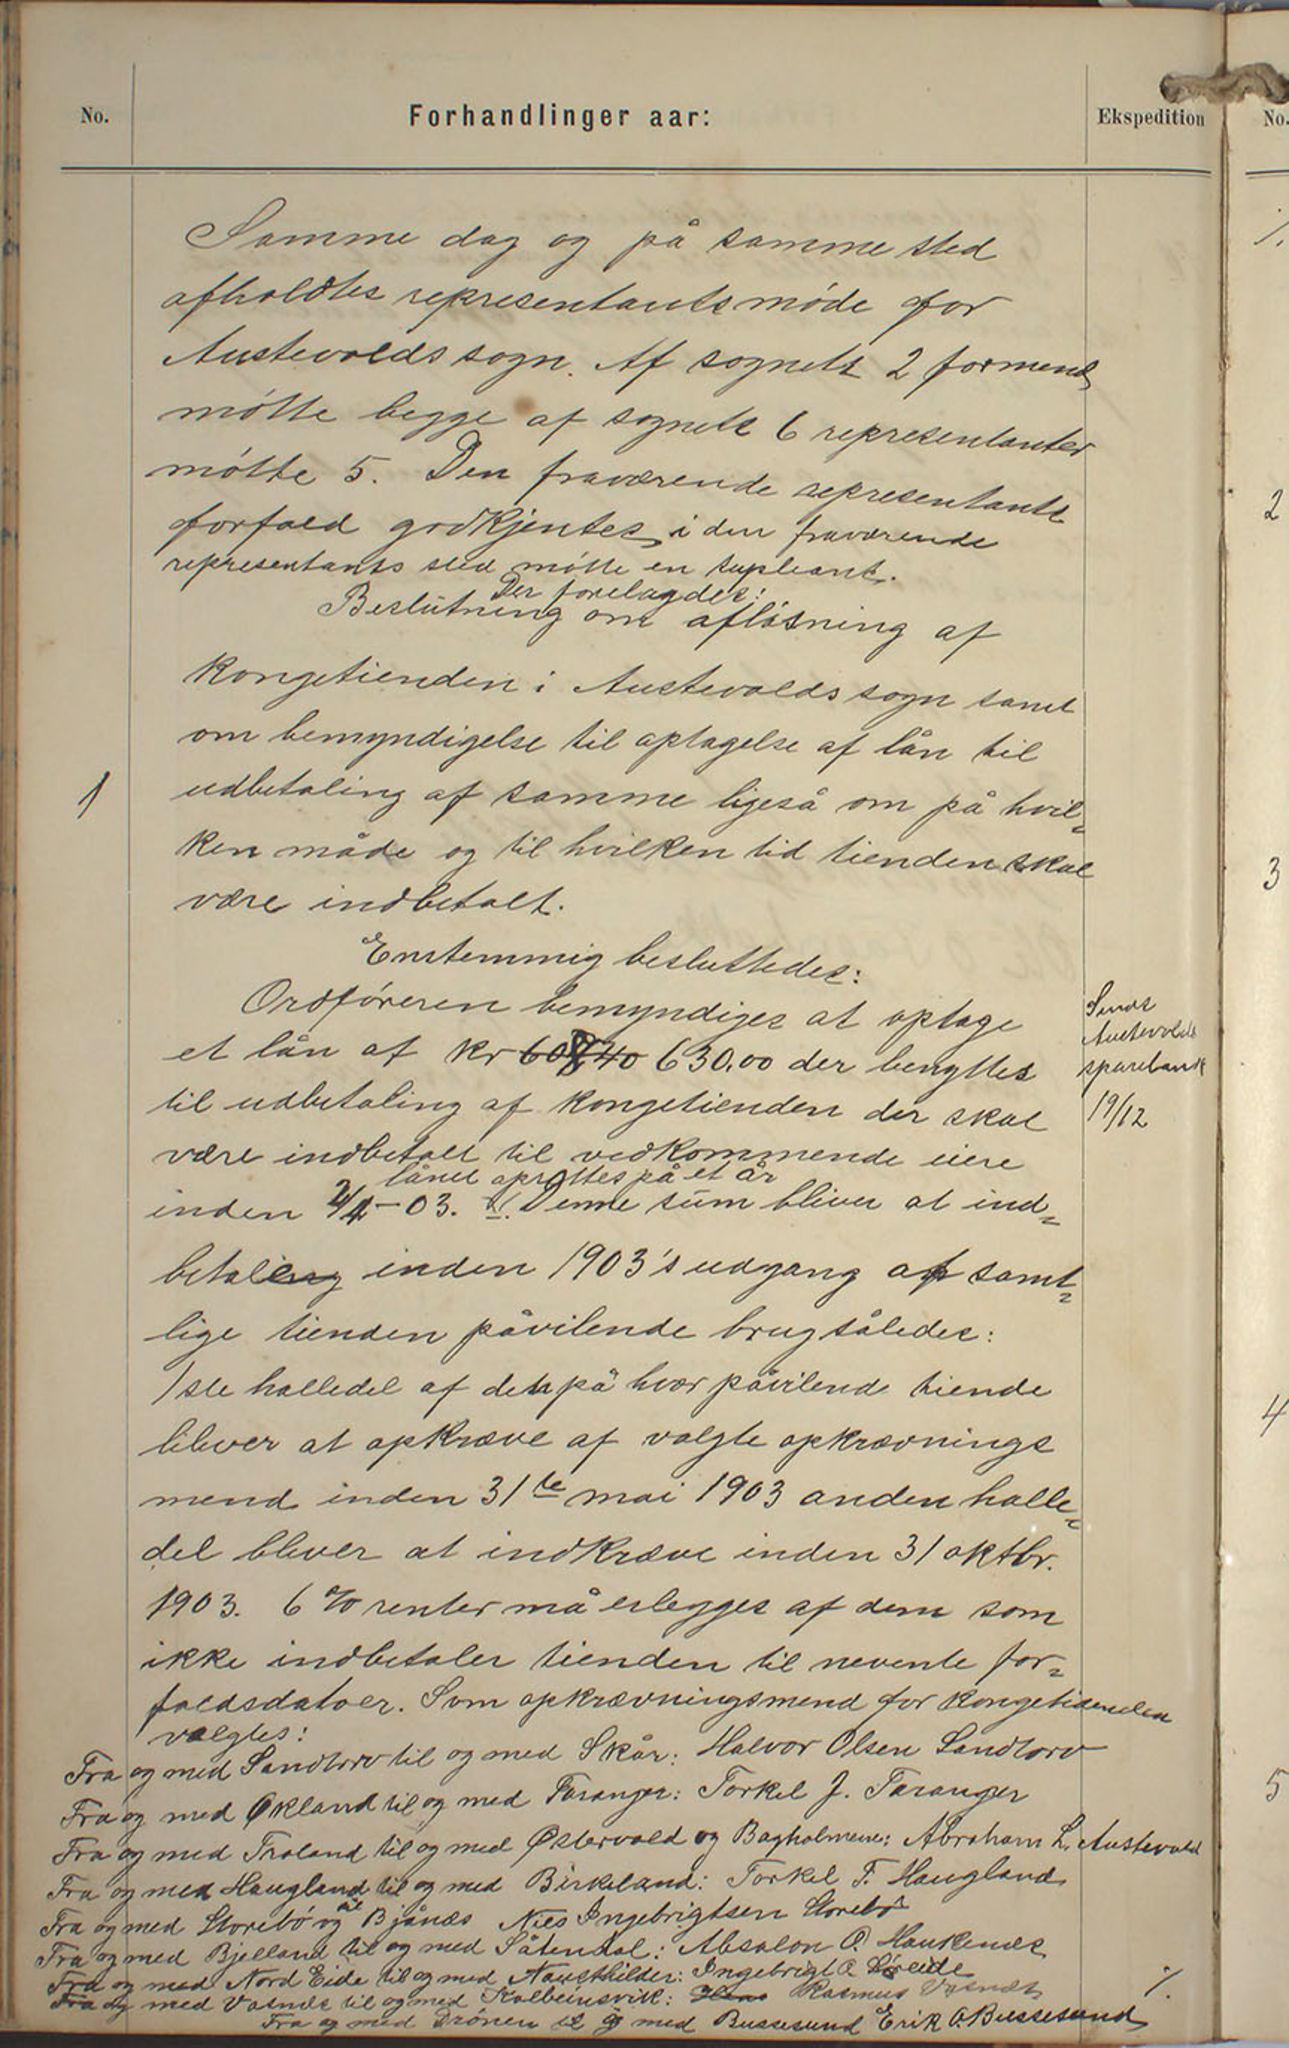 No.
Forhandlinger aar:
Ekspedition
No.
Samme dag og på samme sted
afholdtes representantsmöde for
Austevolds sogn. Af sognets 2 formend
mötte begge af sognets 6 representanter
mötte 5. Den fraværende representants
forfald godkjentes, i den fraværende
representants sted mötte en supleant.
Der forelagdes:
Beslutning om aflösning af
kongetienden i Austevolds sogn samt
om bemyndigelse til optagelse af lån til
1
udbetaling af samme ligeså om på hvil-
ken måde og til hvilken tid tienden skal
være indbetalt.
Enstemmig besluttedes:
Ordföreren bemyndiges at optage
et lån af kr 630,00 der benyttes
til udbetaling af kongetienden der skal
være indbetalt til vedkommende eiere
lånet oprettes på et år
inden 2/4-03. Denne sum bliver at ind-
betaling inden 1903's udgang af samt-
lige tienden påvilende brug således:
1ste halledel af den på hver påvilende tiende
bliver at opkræve af valgte opkrævnings
mend inden 31te mai 1903 anden halle-
del bliver at indkræve inden 31 oktbr.
1903. 6% renter må erlegges af dem som
ikke indbetaler tienden til nevente for-
faldsdatoer. Som opkrævningsmend for kongetienden
valgtes:
Fra og med Sandtorv til og med Skår: Halvor Olsen Sandtorv
Fra og med Økland til og med Taranger: Torkel J. Taranger
Fra og med Troland til og med Østervold og Bagholmene: Abraham L. Austevold
Fra og med Haugland til og med Birkeland: Torkel T. Haugland
Fra og med Storebö og til Bjånæs Nils Ingebrigtsen Storebö
Fra og med Bjelland til og med Såtendal: Absalon O. Haukenæs
Fra og med Nord Eide til og med Nausthilder: Ingebrigt O.
Fra og med Vasnæs til og med Kolbeinsvik: Rasmus Vasnæs
Fra og med Drönen til og med Bussesund Erik O. Bussesund
Sends
Austevolds
sparebank
19/12
2
3
4
5